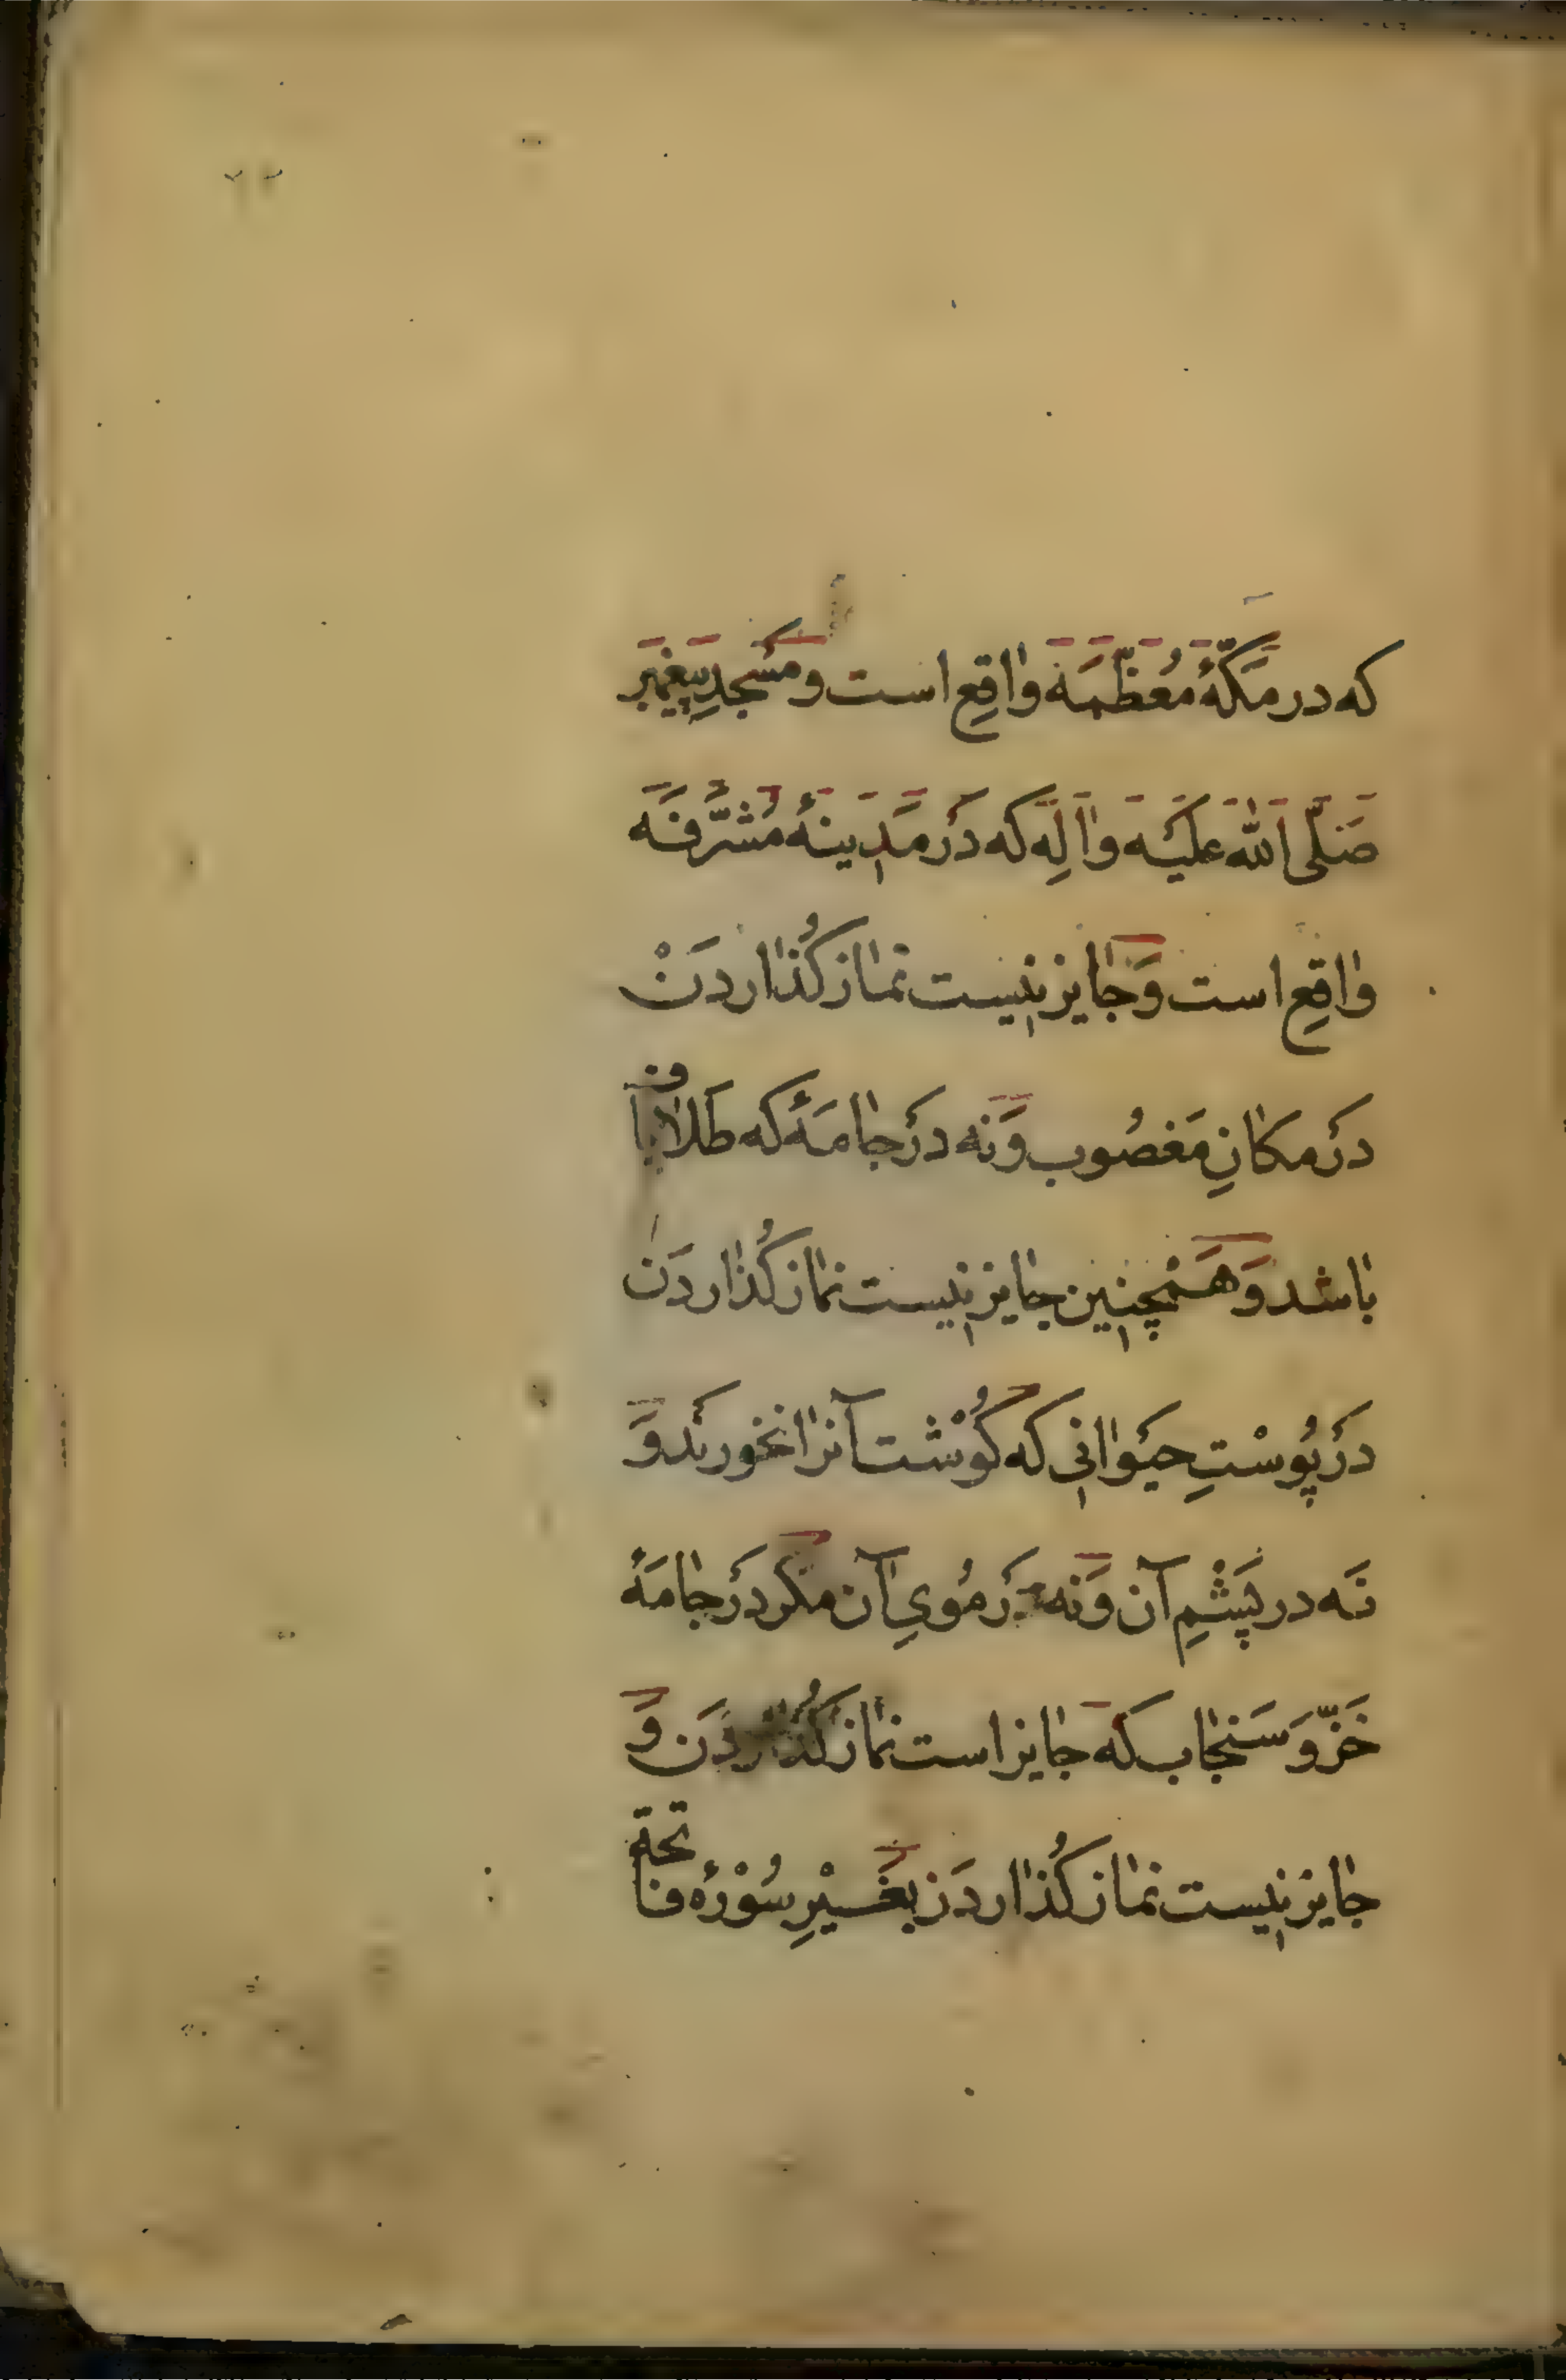 که در مَکَّهٔ مُعَظَّمَه وٰاقِع است و مَسْجِدِ پیغمبر
صَلَّی اللّٰه عَلَیْه وَاٰلِه که دَر مَدینهٔ مُشَرَّفَه
وٰاقِع است وَ جٰایز نیست نمٰاز گُذٰاردَنْ
دَر مکٰانِ مَغصُوب وَ نه دَر جٰامَهٔ که طَلا بافـ
بٰاشد وَ هَمْچنین جٰایز نیست نمٰاز گُذٰاردَن
دَر پُوسْتِ حیَوٰانی که گُوْشْت آنرٰا نخورَند وَ
نَه در پَشْمِ آن وَ نه دَر مُویِ آن مگر دَر جٰامَهٔ
خَزّ وَ سَنجٰاب که جٰایز است نمٰاز گُذٰاردَن وَ
جٰایز نیست نمٰاز گُذٰاردَن بغَیْرِ سُوْرهٔ فٰاتحة